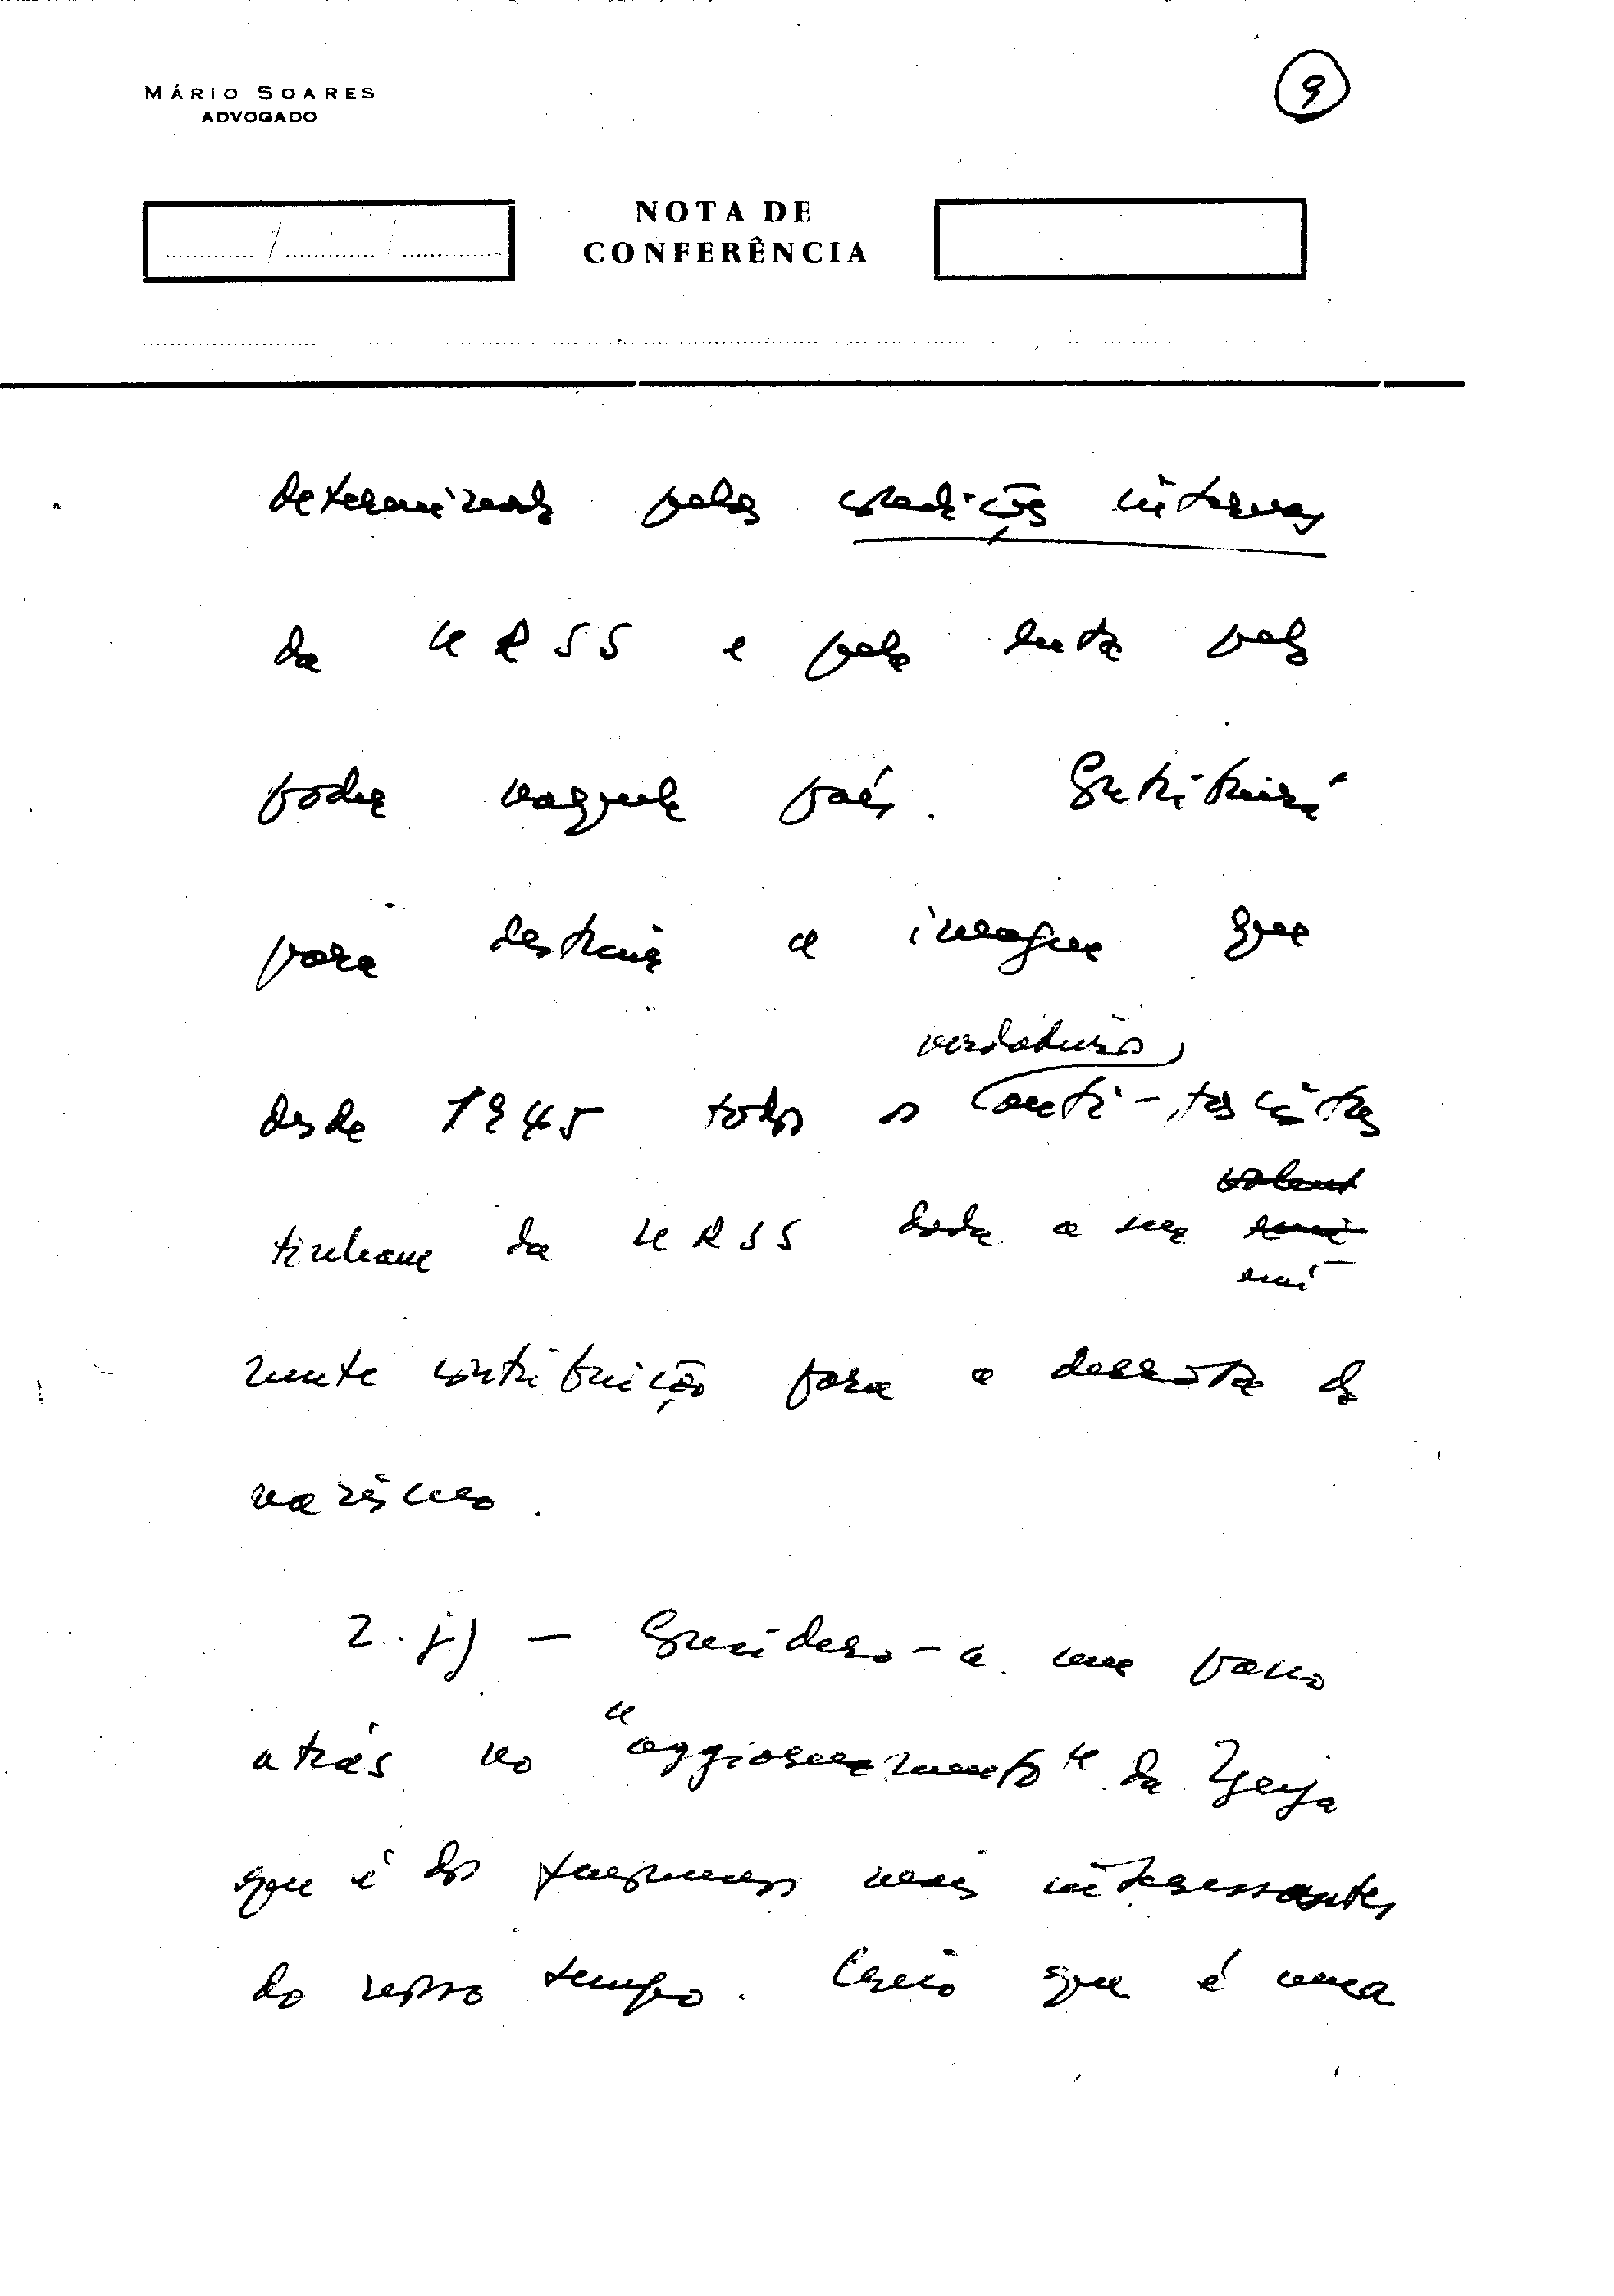 MÁRIO SOARES
ADVOGADO
9
NOTA DE
CONFERÊNCIA
determinado pelas condições internas
da URSS e pela luta pelo
poder naquele país. Contribuirá
para destruir a imagem que
verdadeiros
desde 1945 todos os anti-fascistas
tinham da URSS dada a sua
emi-
nente contribuição para a derrota do
nazismo.
2. j) - Considero-a um passo
atrás no "aggiornamento" da Igreja
que é dos fenómenos mais interessantes
do nosso tempo. Creio que é uma